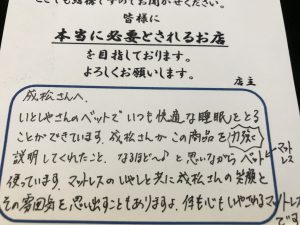 どこでも結構ですのでお聞かせください。
皆様に
本当に必要とされるお店
を目指しております。
よろしくお願いします。
店主
成松さんへ。
いとしやさんのベットでいつも快適な睡眠をとる
ことができています。成松さんがこの商品を力強く
説明してくれたこと、なるほど〜♪と思いながらベットとマットレス
使っています。マットレスのいやしと共に成松さんの笑顔と
その雰囲気を思い出すこともありますよ。体も心もいやされるマットレス
です